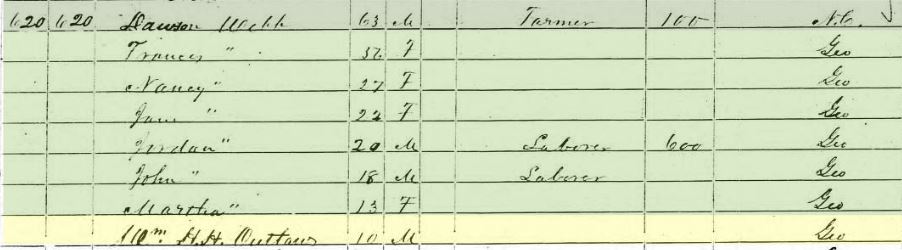 620 620 Dawson Webb 63 M Farmer 100 N.C.
Frances " F Geo
Nancy " 27 F Geo
Jane " 22 F Geo
Jordan " 20 M Laborer 600 Geo
John " 18 M Laborer Geo
Martha " 13 F Geo
Wm. H.H. Outlaw 10 M Geo